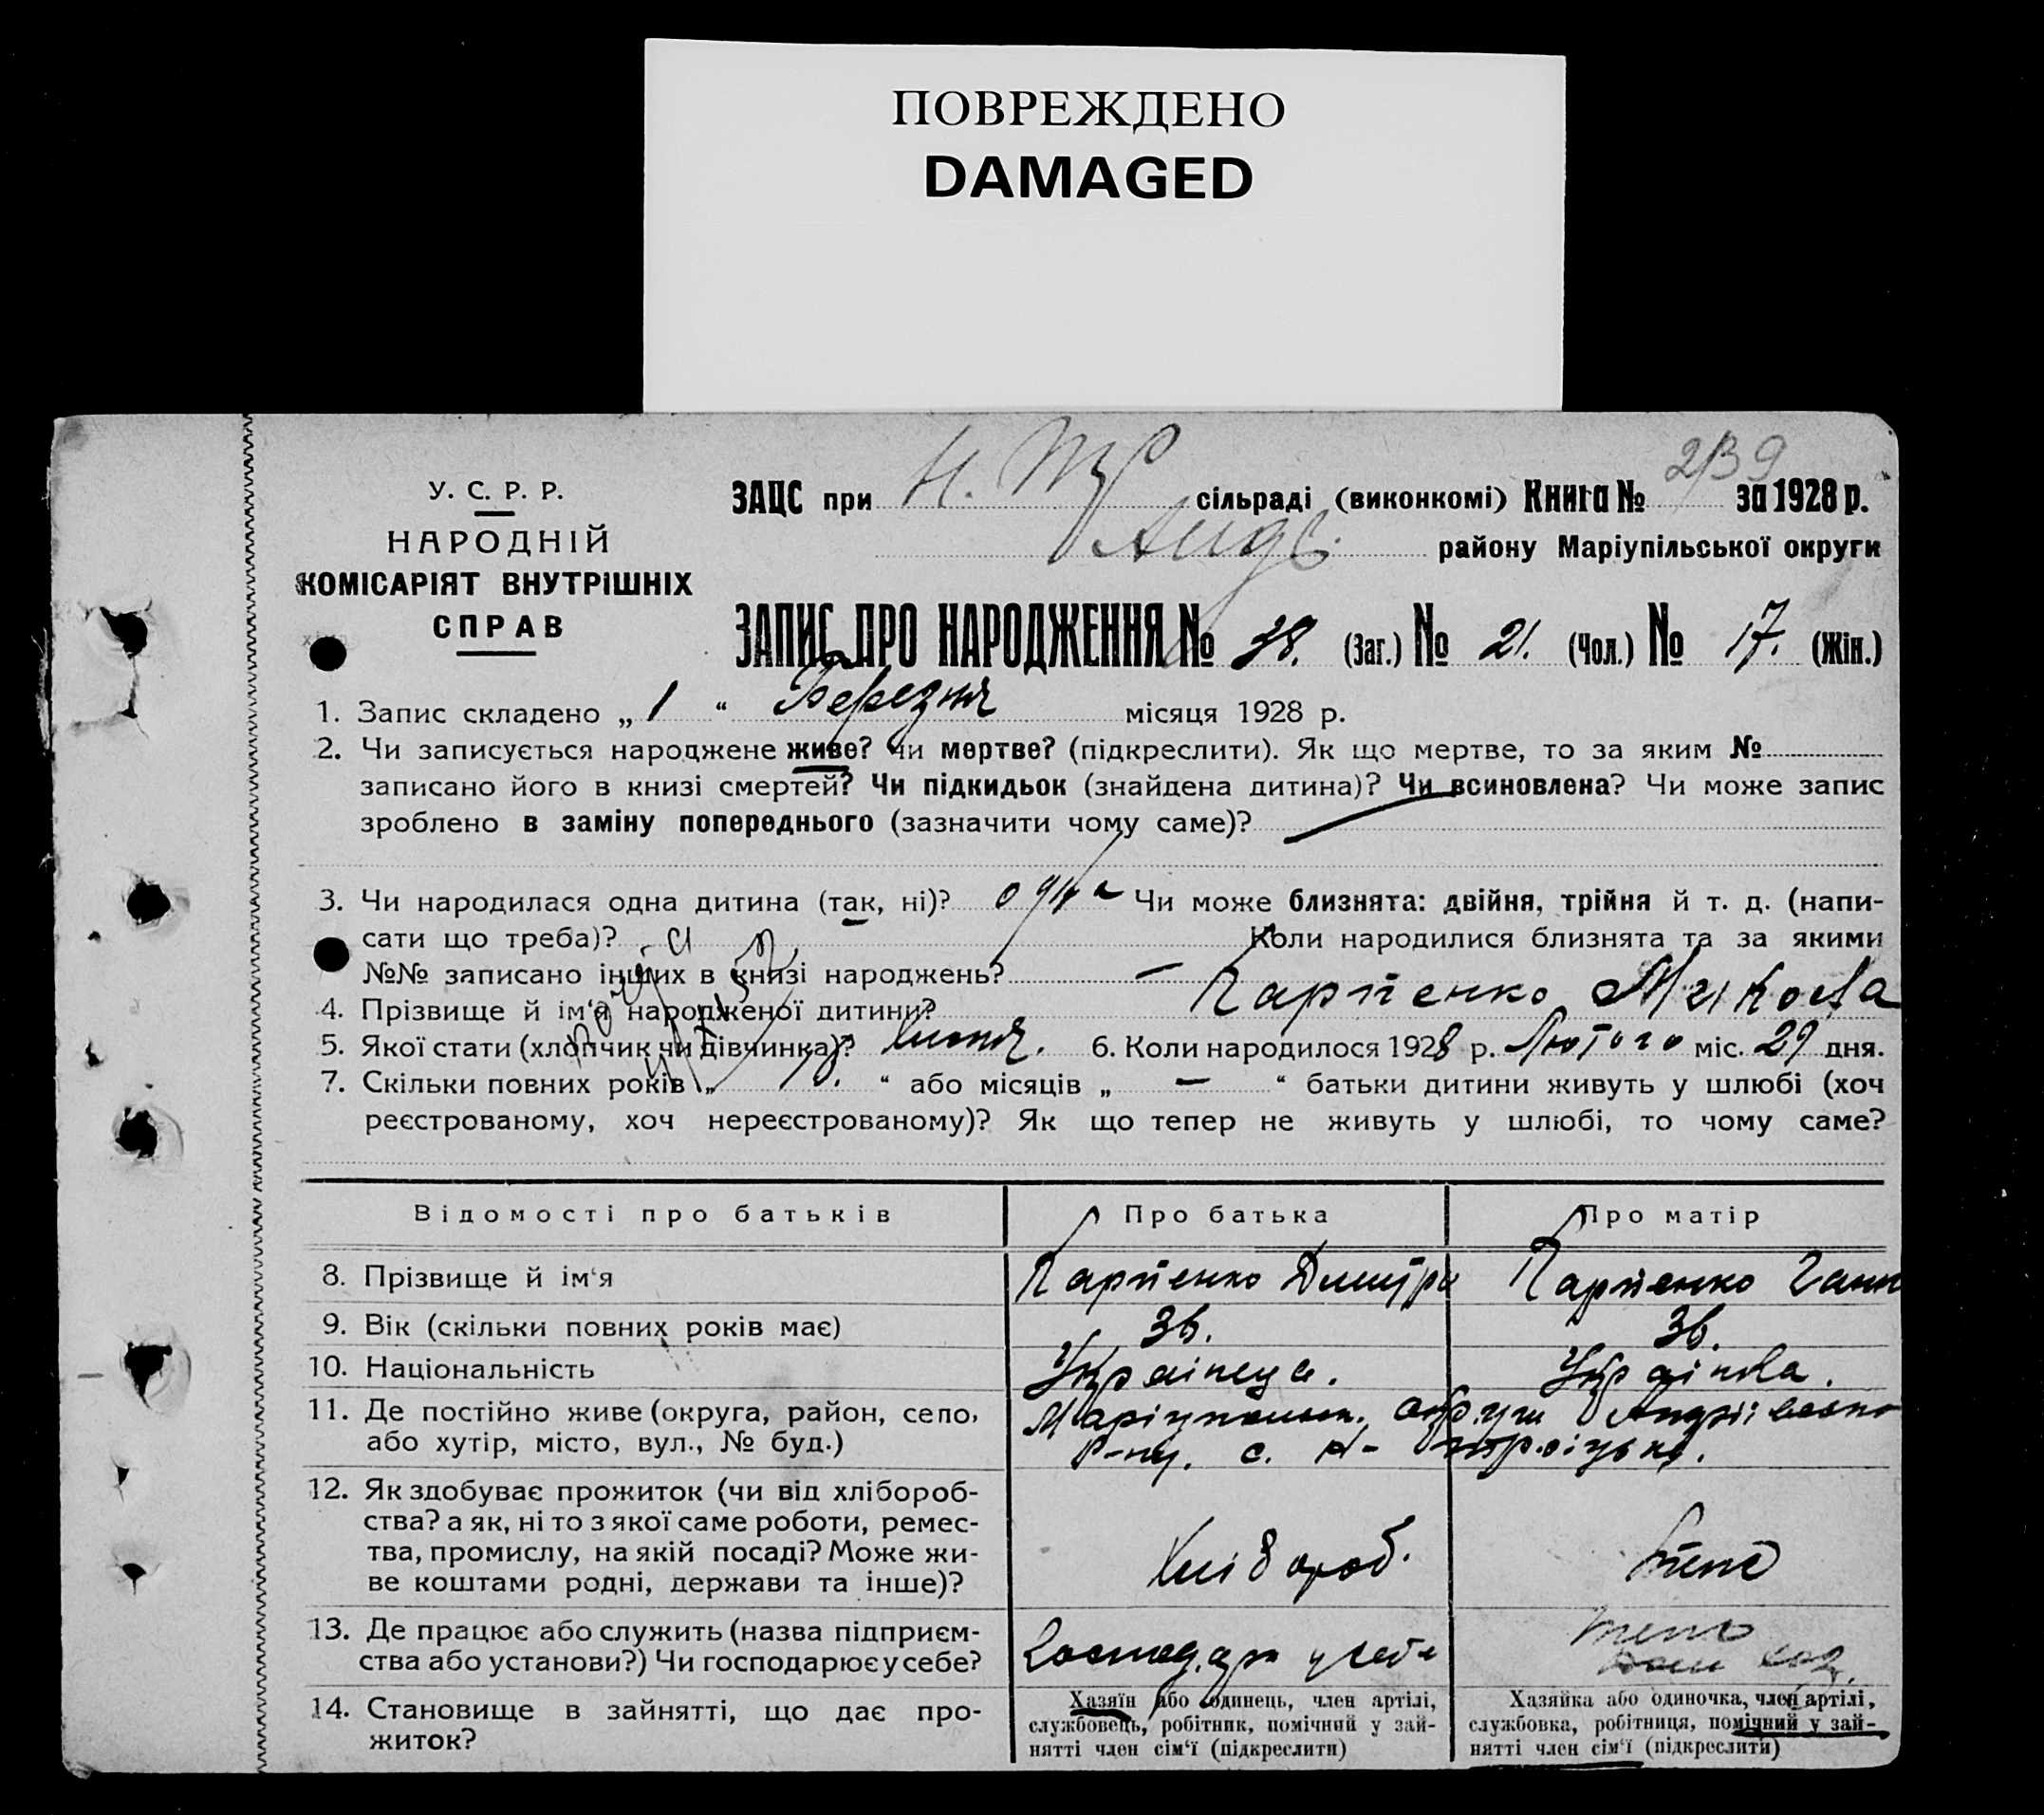 ПОВРЕЖДЕНО
DAMAGED
У. С. Р. Р.
НАРОДНІЙ
КОМІСАРІЯТ ВНУТРІШНІХ
СПРАВ
ЗАЦС при Н. Тр сільраді (виконкомі) Книга № 2/39 за 1928 р.
Андр. району Маріупільської округи
ЗАПИС ПРО НАРОДЖЕННЯ № 38. (Заг.) № 21. (Чол.) № 17. (Жін.)
1. Запис складено „ 1 “ Березня місяця 1928 р.
2. Чи записується народжене живе? чи мертве? (підкреслити). Як що мертве, то за яким №
записано його в книзі смертей? Чи підкидьок (знайдена дитина)? Чи всиновлена? Чи може запис
зроблено в заміну попереднього (зазначити чому саме)?
3. Чи народилася одна дитина (так, ні)? одна Чи може близнята: двійня, трійня й т. д. (напи-
сати що треба)? Коли народилися близнята та за якими
№№ записано інших в книзі народжень? —
4. Прізвище й ім‘я народженої дитини? Микола
5. Якої стати (хлопчик чи дівчинка)? 6. Коли народилося 1928 р. Лютого міс. 29 дня.
7. Скільки повних років „ 18. “ або місяців „ — “ батьки дитини живуть у шлюбі (хоч
реєстрованому, хоч нереєстрованому)? Як що тепер не живуть у шлюбі, то чому саме?
Відомості про батьків Про батька Про матір
8. Прізвище й ім‘я Дмитро Ганн
9. Вік (скільки повних років має) 36. 36.
10. Національність Українець. Українка.
11. Де постійно живе (округа, район, село, Маріупольськ. округи Андріївсько
або хутір, місто, вул., № буд.) р-ну. с. Н-Троїцьке.
12. Як здобуває прожиток (чи від хлібороб-
ства? а як, ні то з якої саме роботи, ремес-
тва, промислу, на якій посаді? Може жи-
ве коштами родні, держави та інше)? Хлібороб. теж
13. Де працює або служить (назва підприєм-
ства або установи?) Чи господарює у себе? Господарь у себе
14. Становище в зайнятті, що дає про-
житок?
Хазяїн або одинець, член артілі,
службовець, робітник, помічний у зай-
нятті член сім‘ї (підкреслити)
Хазяйка або одиночка, член артілі,
службовка, робітниця, помічний у зай-
нятті член сім‘ї (підкреслити)